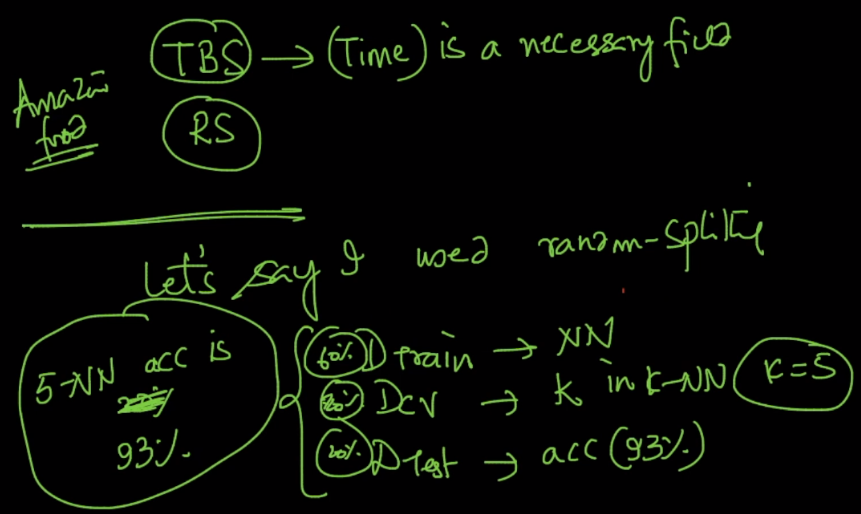 TBS → (Time) is a necessary field
Amazon
food
RS
Let's say I used random-splitting
5-NN acc is
93%.
60% D train → NN
20% D CV → K in K-NN K=5
20% D Test → acc (93%.)